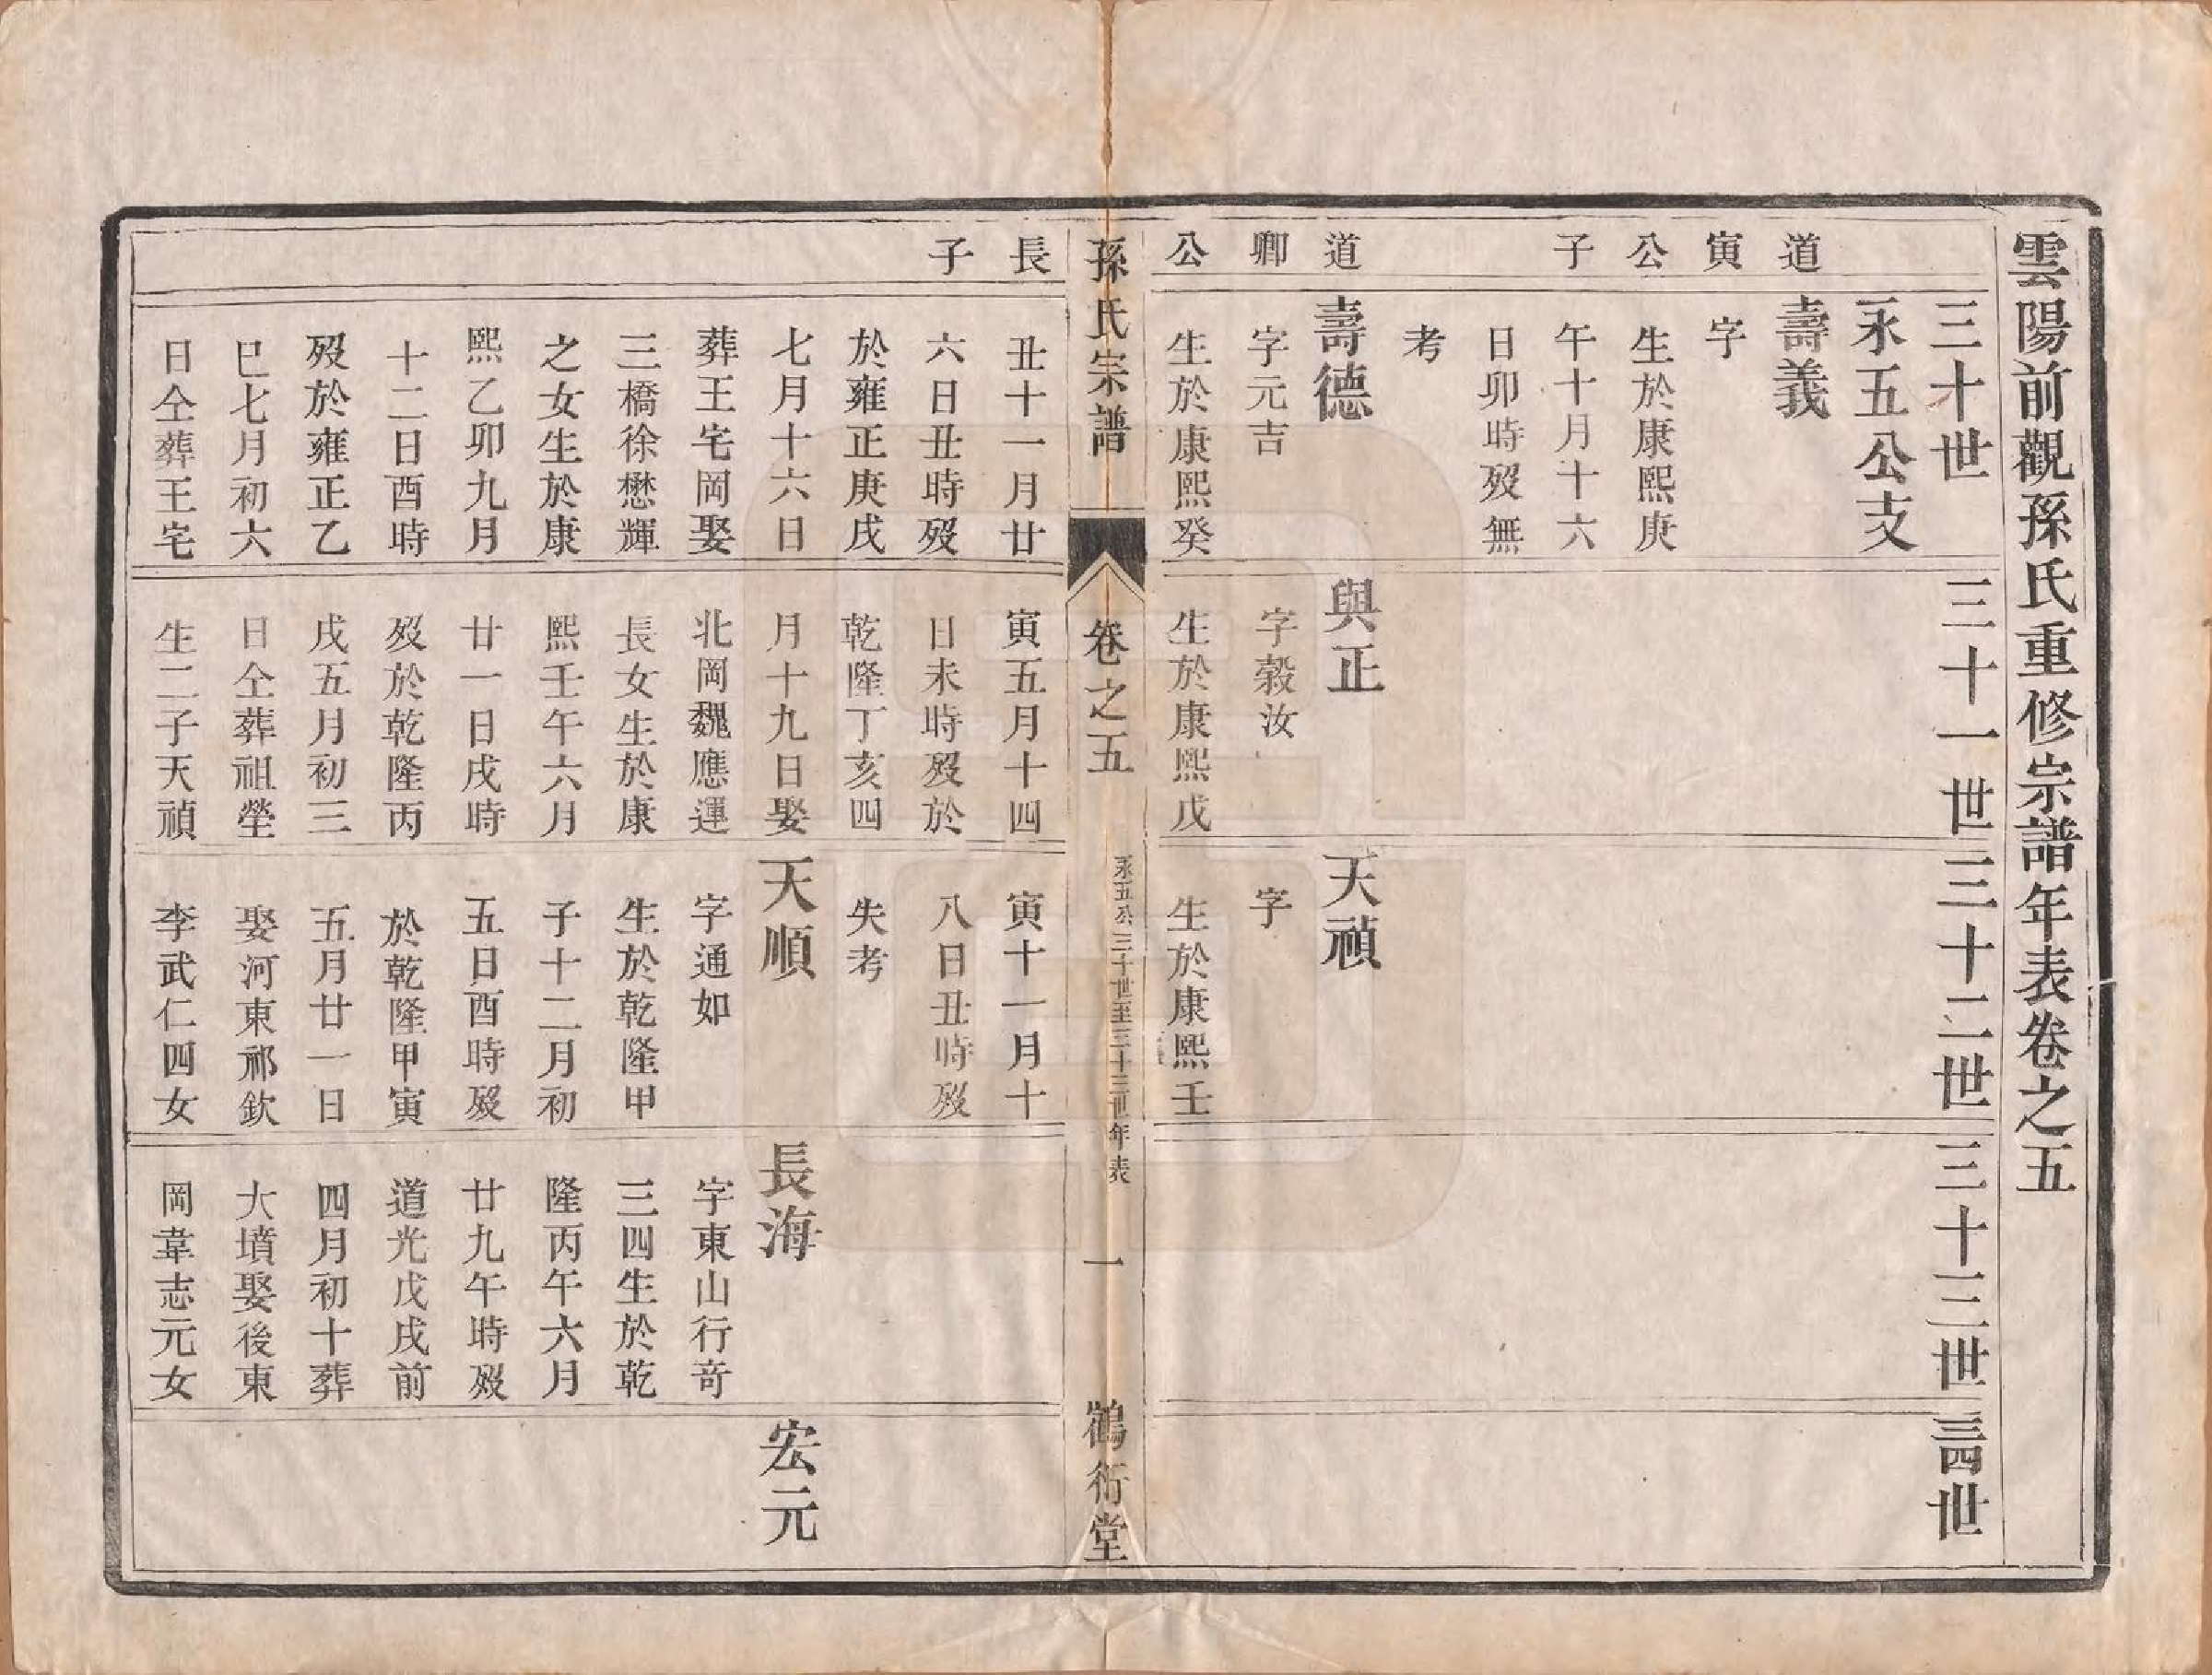 雲陽前觀孫氏重修宗譜年表卷之五
三十世
三十一世
三十二世
三十三世
三四世
永五公支
道寅公子
壽義
字
生於康熙庚
午十月十六
日卯時歿無
考
道卿公
壽德
字元吉
生於康熙癸
與正
字榖汝
生於康熙戊
天禎
字
生於康熙壬
孫氏宗譜
卷之五
永五公三十世至三十三世年表
一
鶴衍堂
長子
丑十一月廿
六日丑時歿
於雍正庚戌
七月十六日
葬王宅岡娶
三橋徐懋輝
之女生於康
熙乙卯九月
十二日酉時
歿於雍正乙
巳七月初六
日仝葬王宅
寅五月十四
日未時歿於
乾隆丁亥四
月十九日娶
北岡魏應運
長女生於康
熙壬午六月
廿一日戌時
歿於乾隆丙
戌五月初三
日仝葬祖塋
生二子天禎
寅十一月十
八日丑時歿
失考
天順
字通如
生於乾隆甲
子十二月初
五日酉時歿
於乾隆甲寅
五月廿一日
娶河東祁欽
李武仁四女
長海
字東山行竒
三四生於乾
隆丙午六月
廿九午時歿
道光戊戌前
四月初十葬
大墳娶後東
岡韋志元女
宏元